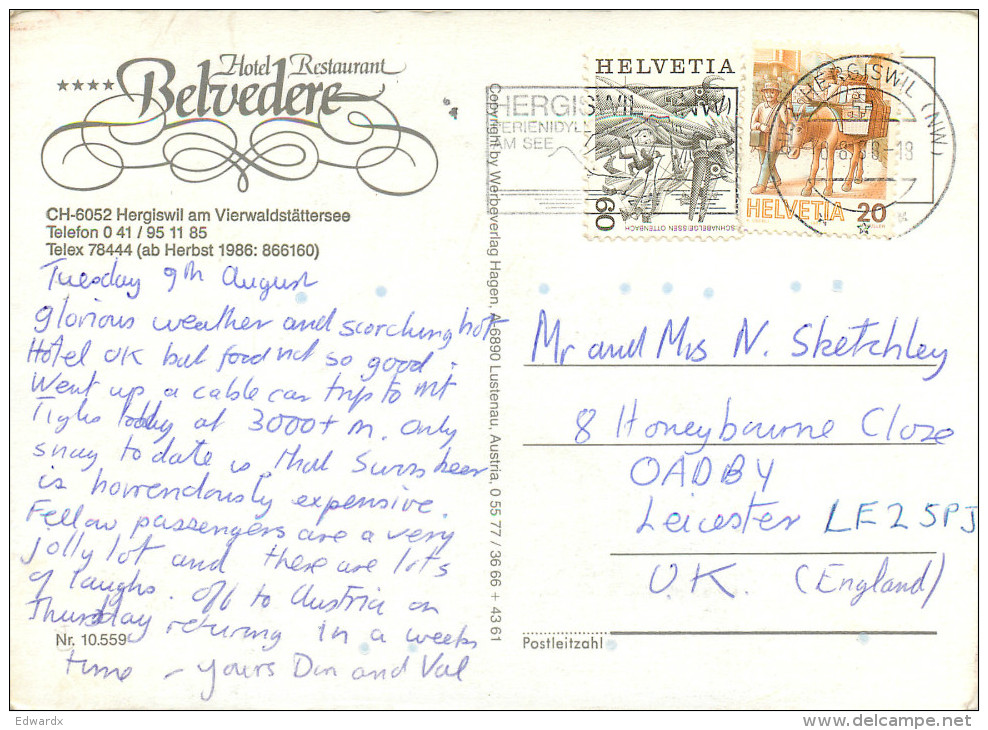 Hotel Restaurant
Belvedere
CH-6052 Hergiswil am Vierwaldstättersee
Telefon 0 41 / 95 11 85
Telex 78444 (ab Herbst 1986: 866160)
Tuesday 9th August
Glorious weather and scorching hot
Hotel OK but food not so good.
Went up a cable car trip to Mt
Titlis today at 3000+ m. Only
snag to date is that Swiss beer
is horrendously expensive.
Fellow passengers are a very
jolly lot and there are lots
of laughs. Off to Austria on
Thursday returning in a weeks
time – yours Don and Val
Nr. 10.559
Copyright by Werbeverlag Hagen, A-6890 Lustenau, Austria, 0 55 77 / 36 66 + 43 61
HERGISWIL (NW)
FERIENIDYLL
AM SEE
HELVETIA
60
SCHNABELGEISSEN OTTENBACH
HELVETIA 20
HERGISWIL (NW)
8.88-18
Mr and Mrs N. Sketchley
8 Honeybourne Close
OADBY
Leicester LE2 5PJ
U.K. (England)
Postleitzahl
Edwardx
delcampe.net